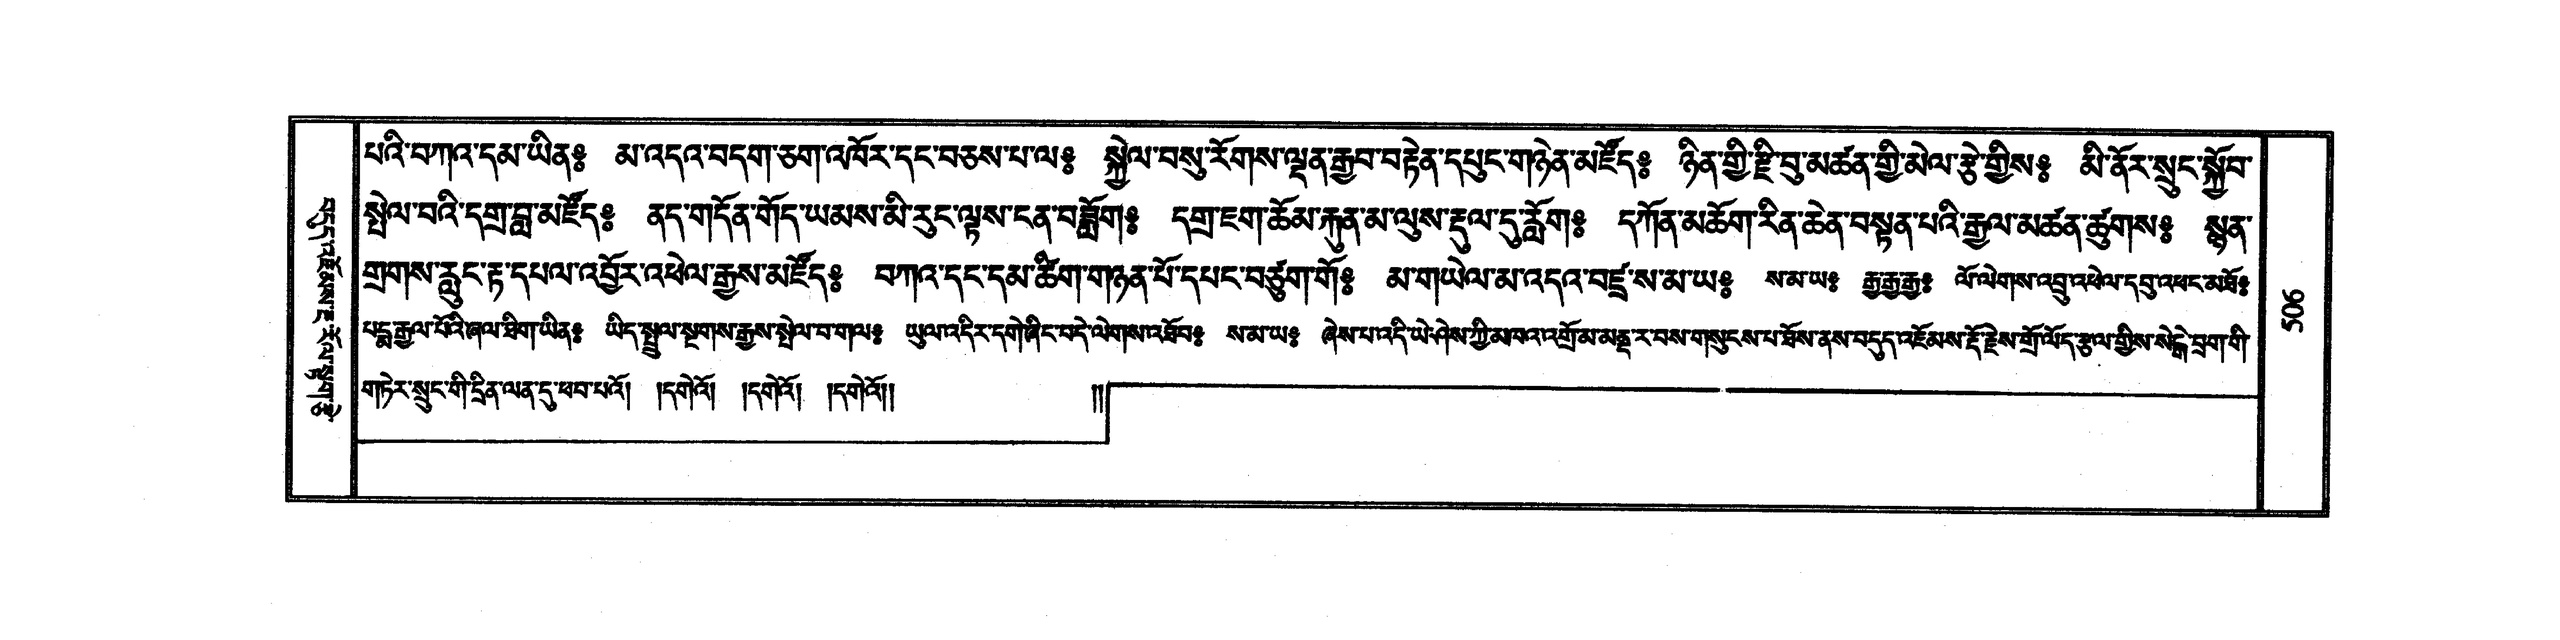 པའི་བཀའ་དམ་ཡིན༔ མ་འདའ་བདག་ཅག་འཁོར་དང་བཅས་པ་ལ༔ སྐྱེལ་བསུ་རོགས་ལྡན་རྒྱབ་བརྟེན་དཔུང་གཉེན་མཛོད༔ ཉིན་གྱི་རྫི་བུ་མཚན་གྱི་མེལ་རྩེ་གྱིས༔ མི་ནོར་སྲུང་སྐྱོབ་
སྤེལ་བའི་དགྲ་བླ་མཛོད༔ ནད་གདོན་གོད་ཡམས་མི་རུང་ལྟས་ངན་བཟློག༔ དགྲ་ཇག་ཆོམ་རྐུན་མ་ལུས་རྡུལ་དུ་རློག༔ དཀོན་མཆོག་རིན་ཆེན་བསྟན་པའི་རྒྱལ་མཚན་ཚུགས༔ སྙན་
གྲགས་རླུང་རྟ་དཔལ་འབྱོར་འཕེལ་རྒྱས་མཛོད༔ བཀའ་དང་དམ་ཚིག་གཉན་པོ་དཔང་བཙུག་གོ༔ མ་གཡེལ་མ་འདའ་བཛྲ་ས་མ་ཡ༔ ས་མ་ཡ༔ རྒྱ་རྒྱ་རྒྱ༔ ལོ་ལེགས་འབྲུ་འཕེལ་དབུ་འཕང་མཐོ༔
པདྨ་རྒྱལ་པོའི་ཞལ་ཐིག་ཡིན༔ ཡིད་སྤྲུལ་སྔགས་རྒྱས་སྤེལ་བ་གལ༔ ཡུལ་འདིར་དགེ་ཞིང་བདེ་ལེགས་འཐོབ༔ ས་མ་ཡ༔ ཞེས་པ་འདི་ཡེ་ཤེས་ཀྱི་མཁའ་འགྲོ་མ་མནྡ་ར་བས་གསུངས་པ་ཐོས་ནས་བདུད་འཇོམས་རྡོ་རྗེས་གྲོ་ལོད་རྩལ་གྱིས་སེངྒེ་བྲག་གི་
གཏེར་སྲུང་གི་དྲིན་ལན་དུ་ཕབ་པའོ། །དགེའོ། །དགེའོ། །དགེའོ།། །།